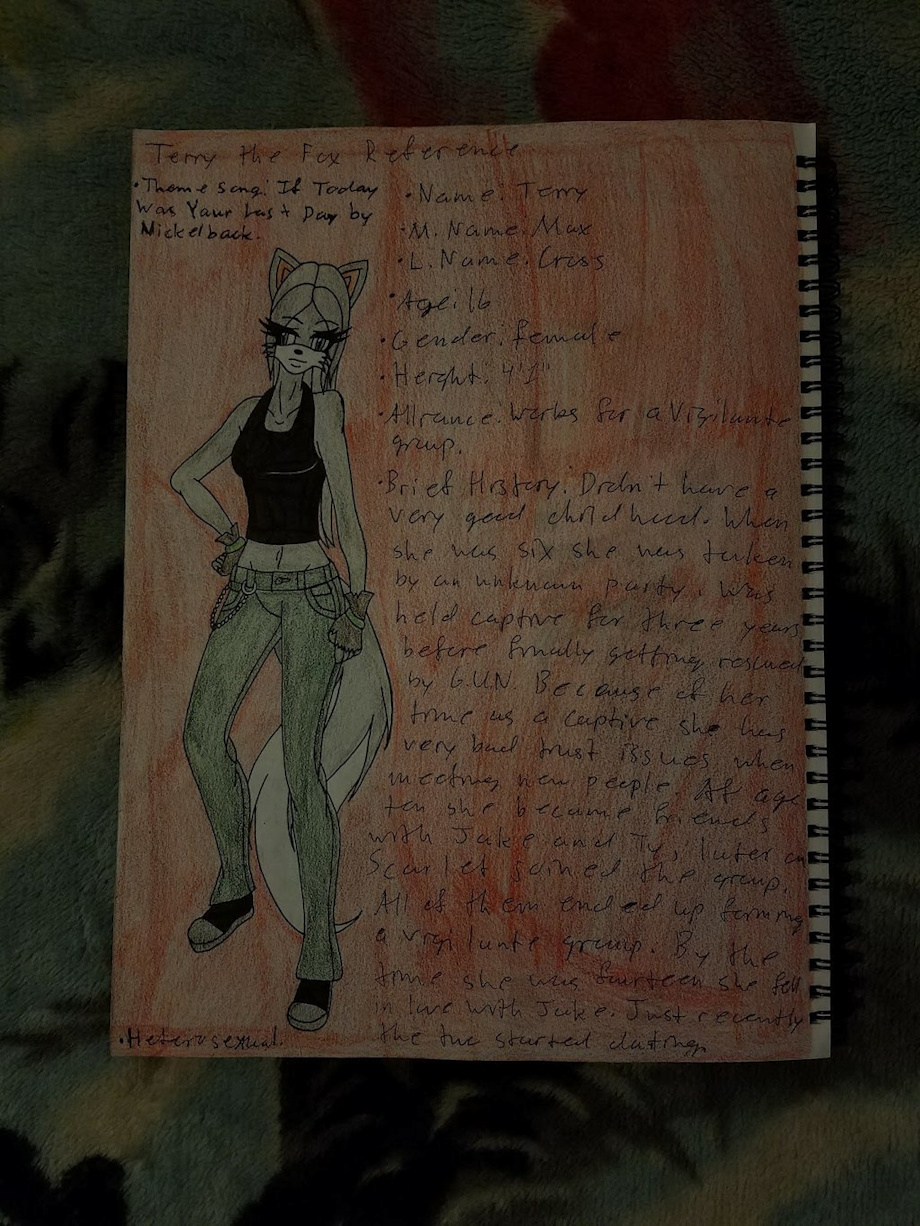 Terry the Fox Reference
•Theme song: If Today
Was Your Last Day by
Nickelback.
•Name: Terry
•M. Name: Max
•L. Name: Cross
•Age: 16
•Gender: female
•Height: 4'1"
•Alliance: Works for a Vigilante
group.
•Brief History: Didn't have a
very good childhood. When
she was six she was taken
by an unknown party, was
held captive for three years
before finally getting rescued
by G.U.N. Because of her
time as a captive she has
very bad trust issues when
meeting new people. At age
ten she became friends
with Jake and Ty, later on
Scarlet joined the group.
All of them ended up forming
a vigilante group. By the
time she was fourteen she fell
in love with Jake. Just recently
the two started dating.
•Heterosexual.